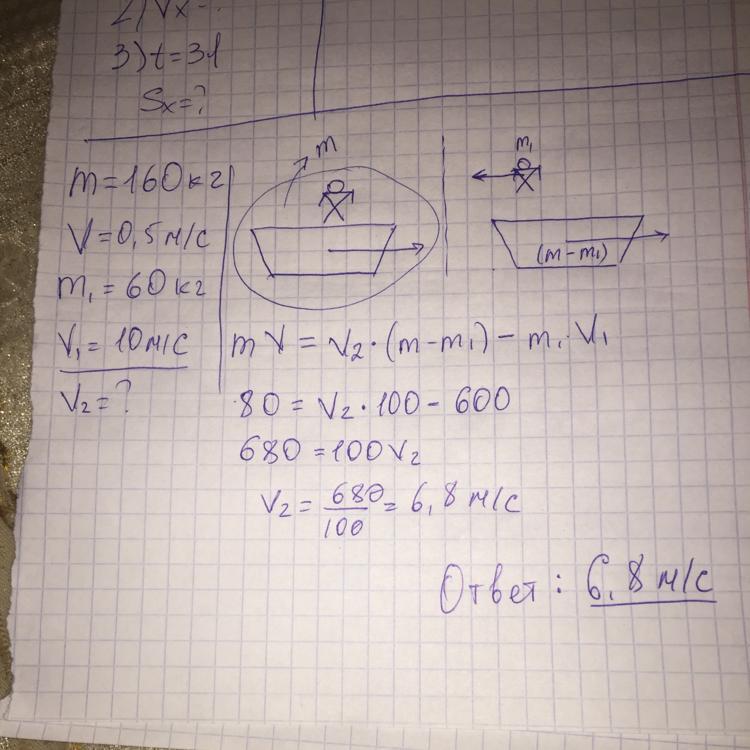 2) Vx-?
3) t=31
Sx=?
m=160кг
V=0,5м/с
m₁=60кг
V₁=10м/с
V₂=?
m
m₁
(m-m₁)
mV=V₂·(m-m₁)-m₁·V₁
80=V₂·100-600
680=100V₂
V₂=680/100=6,8м/с
Ответ: 6,8м/с